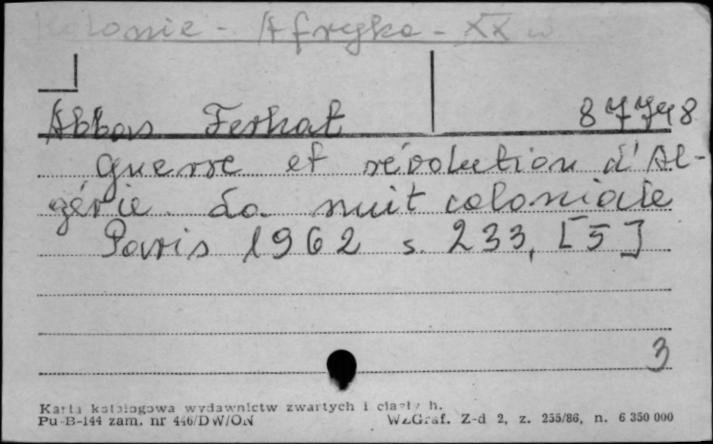 Kolonie - Afryka - XX w
Abbas Ferhat 87748
Guerre et révolution d'Al-
gérie. La nuit coloniale
Paris 1962 s. 233, [5]
3
Karta katalogowa wydawnictw zwartych i ciągłych.
Pu-B-144 zam. nr 446/DW/ON WZGraf. Z-d 2, z. 255/86, n. 6 350 000